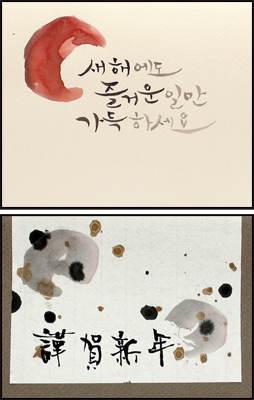 새해에도
즐거운 일만
가득 하세요
謹賀新年